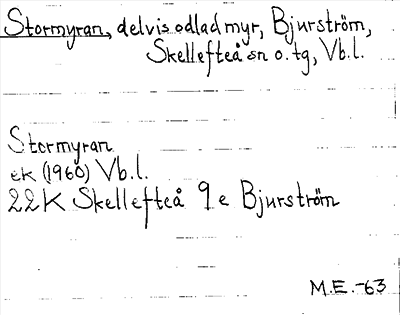 Stormyran, delvis odlad myr, Bjurström,
Skellefteå sn o. tg, Vb.l.
Stormyran
ek (1960) Vb.l.
22K Skellefteå 9e Bjurström
M.E.-63